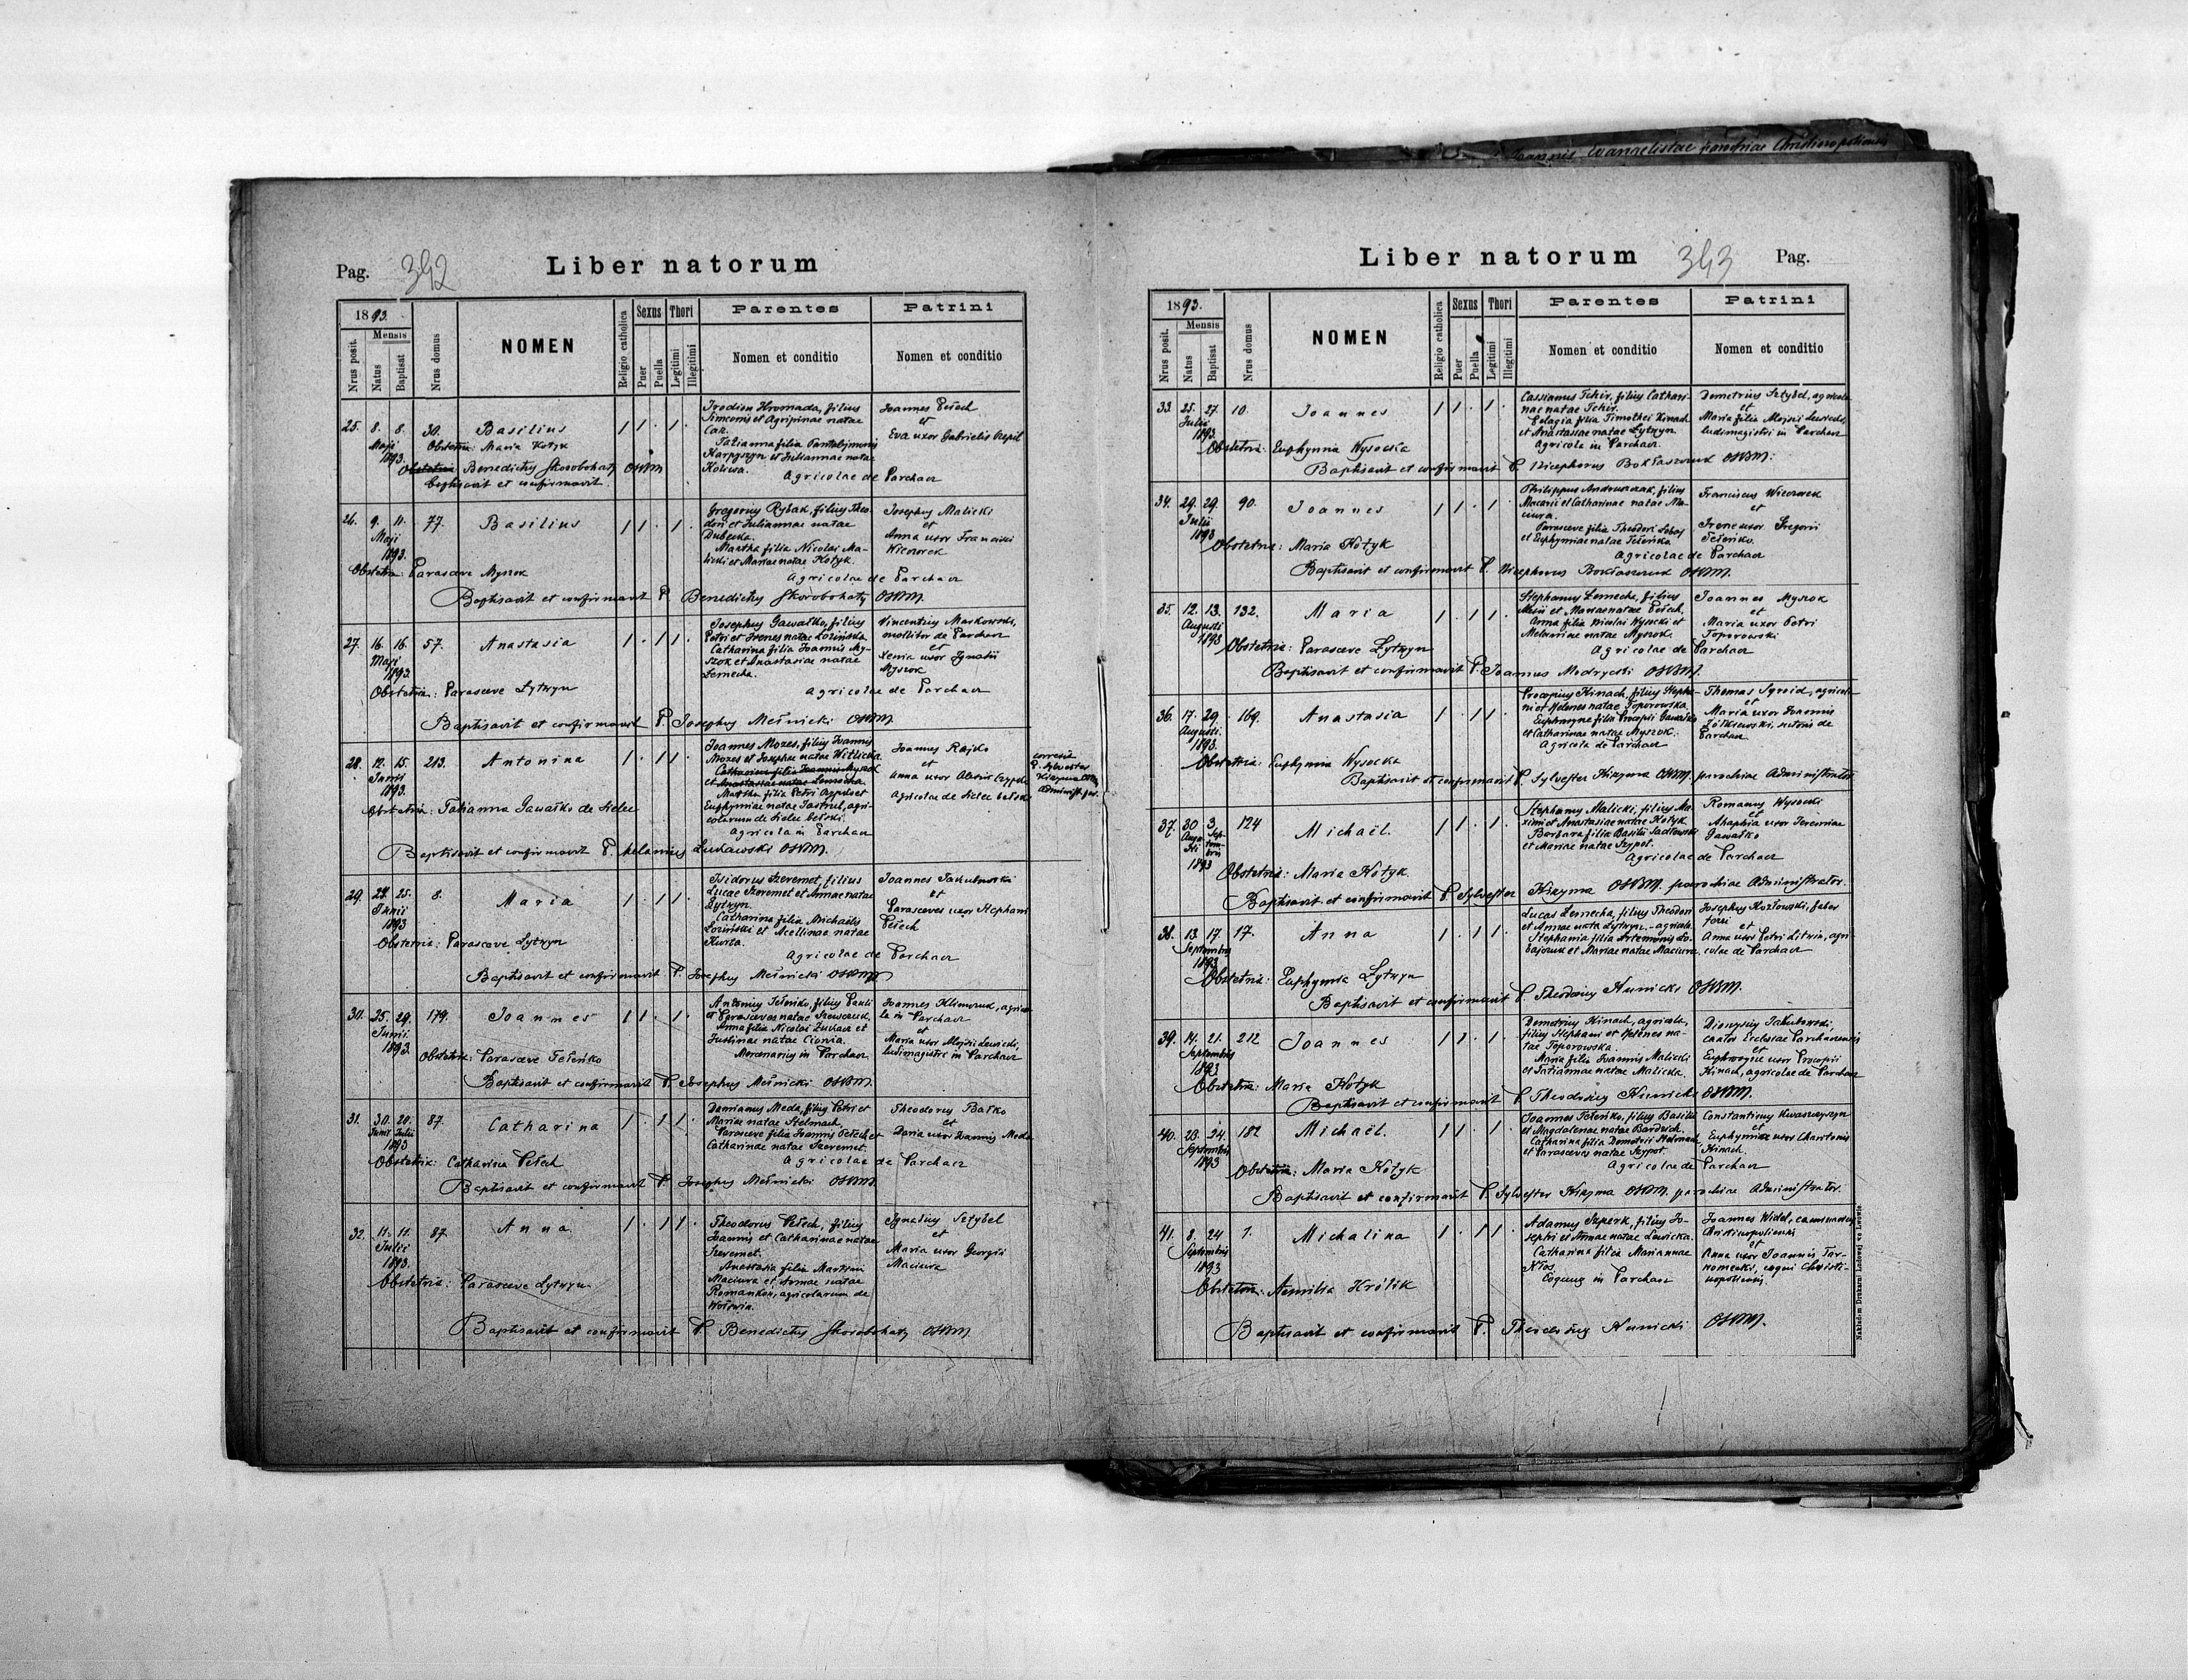 Joannis Evangelistae parochiae Christinopoliensis
Pag. 342 Liber natorum
1893.
Nrus posit.
Mensis
Natus
Baptisat
Nrus domus
NOMEN
Religio catholica
Sexus
Puer
Puella
Thori
Legitimi
Illegitimi
Parentes
Nomen et conditio
Patrini
Nomen et conditio
25. 8. 8. Maji 1893. 30. Basilius 1 1 . 1 .
Irodion Hromada, filius
Simeonis et Agripinae natae
Car.
Tatianna filia Pantaleimonis
Karpyszyn et Juliannae natae
Koliwa.
Agricolae de Parchacz
Joannes Pełech
et
Eva uxor Gabrielis Czepil
Obstetrix: Maria Kotyk
Obstetrix Benedictus Skorobohaty OSBM
baptisavit et confirmavit.
26. 9. 11. Maji 1893. 77. Basilius 1 1 . 1 .
Gregorius Rybak, filius Theo-
dori et Juliannae natae
Dubecka.
Martha filia Nicolai Ma-
licki et Mariae natae Kotyk.
Agricolae de Parchacz
Josephus Malicki
et
Anna uxor Francisci
Wieczorek
Obstetrix: Parasceve Myszok
Baptisavit et confirmavit P. Benedictus Skorobohaty OSBM.
27. 16. 16. Maji 1893. 57. Anastasia 1 . 1 1 .
Josephus Gawałko, filius
Petri et Irenes natae Łozińska.
Catharina filia Joannis My-
szok et Anastasiae natae
Lemecha.
Agricolae de Parchacz
Vincentius Markowski,
mollitor de Parchacz
et
Xenia uxor Ignatii
Myszok
Obstetrix: Parasceve Lytwyn
Baptisavit et confirmavit P. Josephus Mełnicki OSBM.
28. 12. 15. Junii 1893. 213. Antonina 1 . 1 1 .
Joannes Mozes, filius Joannis
Mozes et Josephae natae Witlicka.
Catharina filia Joannis Myszok
et Anastasiae natae Lemecha
Martha filia Petri Czypło et
Euphymiae natae Jastrub, agri-
colarum de Sielec bełski.
Agricola in Parchacz
Joannes Rajko
et
Anna uxor Alexii Czypło
Agricolae de Sielec bełski
correxit
P. Sylvester
Kizyma OSBM
Administ. par.
Obstetrix: Tatianna Gawałko de Sielec
Baptisavit et confirmavit P. Melanius Luchawski OSBM.
29. 24. 25. Junii 1893 8. Maria 1 . 1 1 .
Isidorus Szeremet, filius
Lucae Szeremet et Annae natae
Lytwyn.
Catharina filia Michaelis
Łoziński et Acellinae natae
Agricolae de Parchacz
Joannes Jakubowski
et
Parasceves uxor Stephani
Pełech
Obstetrix: Parasceve Lytwyn
Baptisavit et confirmavit P. Josephus Mełnicki OSBM
30. 25. 29. Junii 1893. 179. Joannes 1 1 . 1 .
Antonius Teleńko, filius Pauli
et Parasceves natae Szewczuk.
Anna filia Nicolai Łuchacz et
Justinae natae Cionia.
Mercenarius in Parchacz
Joannes Klimczuk, agrico-
la in Parchacz
et
Maria uxor Alojsii Lewicki,
ludimagistri in Parchacz
Obstetrix: Parasceve Teleńko
Baptisavit et confirmavit P. Josephus Mełnicki OSBM.
31. 30. Junii 20. Julii 1893 87. Catharina 1 . 1 1 .
Damianus Meda, filius Petri et
Mariae natae Stelmach.
Parasceve filia Joannis Pełech et
Catharinae natae Szeremet.
Agricolae de Parchacz
Theodorus Bałko
et
Daria uxor Joannis Meda
Obstetrix: Catharina Pełech
Baptisavit et confirmavit P. Josephus Mełnicki OSBM.
32. 11. 11. Julii 1893. 87. Anna 1 . 1 1 .
Theodorus Pełech, filius
Joannis et Catharinae natae
Szeremet.
Anastasia filia Martini
Maciura et Annae natae
Romankow, agricolarum de
Wolswin.
Ignatius Sztybel
et
Maria uxor Georgii
Maciura
Obstetrix: Parasceve Lytwyn.
Baptisavit et confirmavit P. Benedictus Skorobohaty OSBM
Liber natorum 343 Pag.
1893.
Nrus posit.
Mensis
Natus
Baptisat
Nrus domus
NOMEN
Religio catholica
Sexus
Puer
Puella
Thori
Legitimi
Illegitimi
Parentes
Nomen et conditio
Patrini
Nomen et conditio
33. 25. 27. Julii 1893. 10. Joannes 1 1 . 1 .
Cassianus Tchir, filius Cathari-
nae natae Tchir.
Pelagia filia Timothei Kinach
et Anastasiae natae Lytwyn.
Agricola in Parchacz.
Demetrius Sztybel, agricola
et
Maria filia Alojsii Lewicki,
ludimagistri in Parchacz
Obstetrix: Euphymia Wysocka
Baptisavit et confirmavit P. Nicephorus Bokłaszczuk OSBM.
34. 29. 29. Julii 1893 90. Joannes 1 1 . 1 .
Philippus Andruszczak, filius
Macarii et Catharinae natae Ma-
ciura.
Parasceve filia Theodori Labaj
et Euphymiae natae Teleńko
Agricolae de Parchacz
Franciscus Wieczorek
et
Irene uxor Gregorii
Teleńko.
Obstetrix: Maria Kotyk
Baptisavit et confirmavit P. Nicephorus Bokłaszczuk OSBM.
35. 12. 13. Augusti 1893 132. Maria 1 . 1 1 .
Stephanus Lemecha, filius
et Mariae natae Pełech.
Anna filia Nicolai Wysocki et
Melaniae natae Myszok.
Agricolae de Parchacz
Joannes Myszok
et
Maria uxor Petri
Toporowski
Obstetrix: Parasceve Lytwyn
Baptisavit et confirmavit P. Joannes Modrycki OSBM.
36. 17. 29. Augusti. 1893. 169. Anastasia 1 . 1 1 .
Procopius Kinach, filius Stepha-
ni et Helenes natae Toporowska.
Euphrosyne filia Procopii Gawałko
et Catharinae natae Myszok.
Agricola de Parchacz
Thomas Syroid, agricola
et
Maria uxor Joannis
Żółkiewski, sutoris de
Parchacz
Obstetrix: Euphymia Wysocka
Baptisavit et confirmavit P. Sylvester Kizyma OSBM. parochiae Administrator
37. 30 Augusti 3. Septembris 1893 124 Michaël. 1 1 . 1 .
Stephanus Malicki, filius Ma-
ximi et Anastasiae natae Kotyk.
Barbara filia Basilii Sadłowski
et Mariae natae Szypot.
Agricolae de Parchacz
Romanus Wysocki
et
Ahaphia uxor Jeremiae
Gawałko
Obstetrix: Maria Kotyk
Baptisavit et confirmavit P. Sylvester Kizyma OSBM. parochiae Administrator.
38. 13. 17. Septembris 1893 17. Anna 1 . 1 1 .
Lucas Lemecha, filius Theodori
et Annae nata Lytwyn. - agricola.
Stephania filia Artemonis Lo-
bajczuk et Mariae natae Maciura.
Josephus Kozłowski, faber
et
Anna uxor Petri Litwin, agri-
colae de Parchacz
Obstetrix: Euphymia Lytwyn
Baptisavit et confirmavit P. Theodosius Kunicki OSBM.
39. 14. 21. Septembris 1893 212 Joannes 1 1 . 1 .
Demetrius Kinach, agricola,
filius Stephani et Helenes na-
tae Toporowska.
Maria filia Joannis Malicki
et Tatiannae natae Malicka.
Dionysius Jakubowski,
cantor Ecclesiae Parchacensis
et
Euphrosyne uxor Procopii
Kinach, agricolae de Parchacz
Obstetrix: Maria Kotyk
Baptisavit et confirmavit P. Theodosius Kunicki OSBM.
40. 23. 24. Septembris 1893 182 Michaël. 1 1 . 1 .
Joannes Teleńko, filius Basilii
et Magdalenae natae Bardzich.
Catharina filia Demetrii Stelmach
et Parasceves natae Szypot.
Agricolae de Parchacz
Constantinus Kwaszczyszyn
et
Euphymiae uxor Charitonis
Kinach.
Obstetrix: Maria Kotyk
Baptisavit et confirmavit P. Sylvester Kizyma OSBM. parochiae Administrator.
41. 8. 24 Septembris 1893 7. Michalina 1 . 1 1 .
Adamus Szperk, filius Jo-
sephi et Annae natae Lewicka.
Catharina filia Mariannae
Kłos.
Coquus in Parchacz
Joannes Widel,
Christinopoliensis
et
Anna uxor Joannis Tar-
nowecki, coqui Christi-
nopoliensis
Obstetrix: Aemilia Królik
Baptisavit et confirmavit P. Theodosius Kunicki OSBM.
Nakładem Drukarni Ludowej we Lwowie.